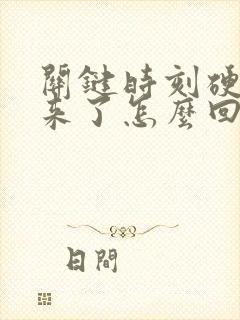 關鍵時刻硬
來了怎麼回
日間